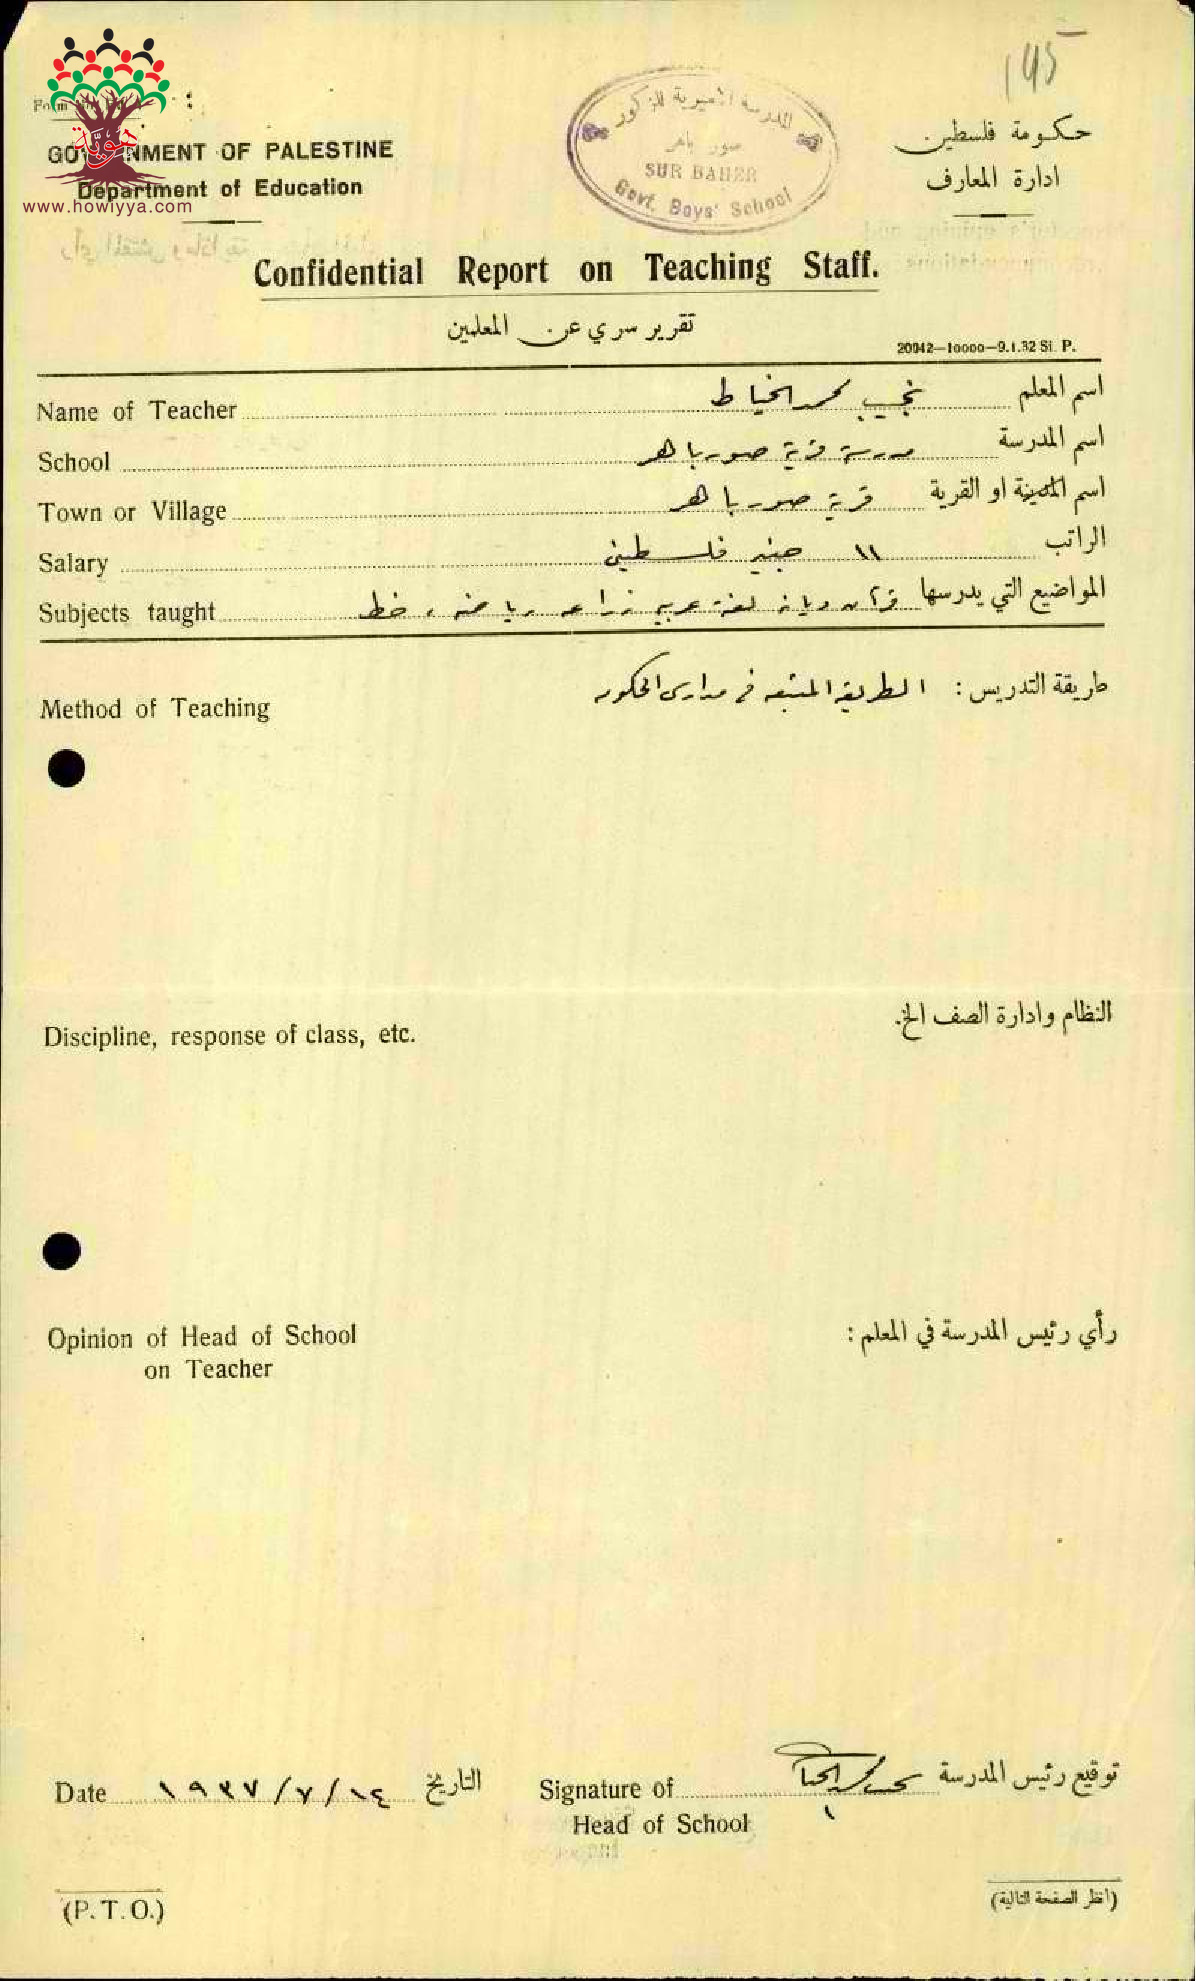 145
Form
GOVERNMENT OF PALESTINE
Department of Education
هوية
www.howiyya.com
المدرسة الاميرية للذكور
صور باهر
SUR BAHER
Govt. Boys' School
حكومة فلسطين
ادارة المعارف
Confidential Report on Teaching Staff.
تقرير سري عن المعلمين
20942—10000—9.1.32 St. P.
Name of Teacher نجيب محمد الخياط اسم المعلم
School مدرسة قرية صور باهر اسم المدرسة
Town or Village قرية صور باهر اسم المدينة او القرية
Salary ١١ جنيه فلسطيني الراتب
Subjects taught قرآن ديانة لغة عربية زراعه رياضه ، خط المواضيع التي يدرسها
Method of Teaching طريقة التدريس : الطريقة المتبعه في مدارس الحكومه
Discipline, response of class, etc. النظام وادارة الصف الخ.
Opinion of Head of School رأي رئيس المدرسة في المعلم :
on Teacher
Date ١٩٣٧/٧/١٤ التاريخ Signature of نجيب محمد الخياط توقيع رئيس المدرسة
Head of School
(P. T. O.) (انظر الصفحة التالية)